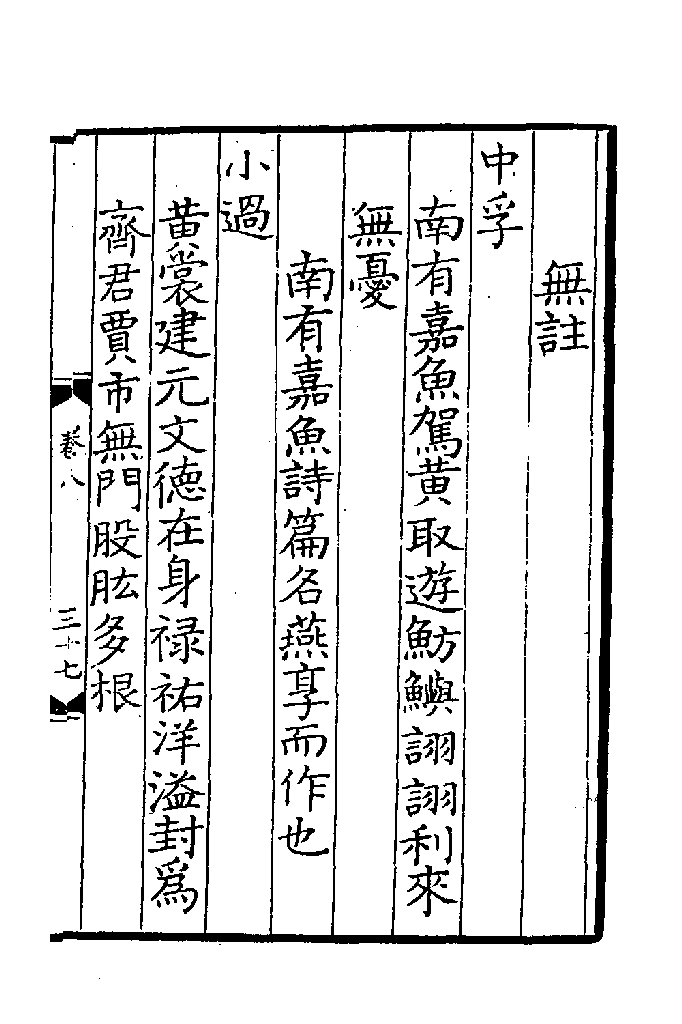 無註
中孚
南有嘉魚駕黄取遊魴鱮詡詡利來
無憂
南有嘉魚詩篇名燕享而作也
小過
黄裳建元文德在身禄祐洋溢封爲
齊君賈市無門股肱多根
卷八
三十七